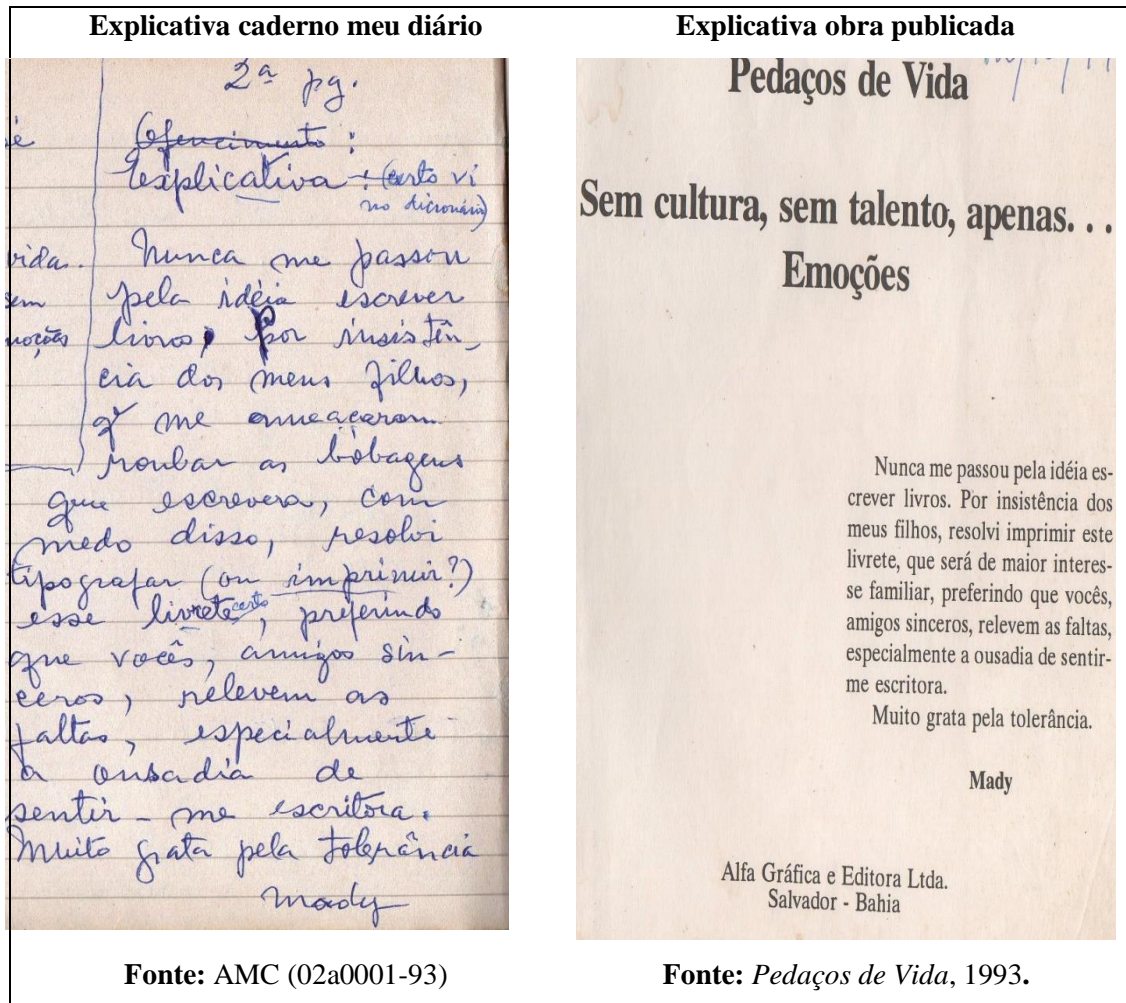 Explicativa caderno meu diário
2ª pg.
Oferecimento :
Explicativa : (certo vi
no dicionário)
vida.
sem
Nunca me passou
pela idéia escrever
livros, Por insistên-
cia dos meus filhos,
q me ameaçaram
roubar as bobagens
que escrevera, com
medo disso, resolvi
tipografar (ou imprimir?)
esse livrete certo, preferindo
que vocês, amigos sin-
ceros, relevem as
faltas, especialmente
a ousadia de
sentir-me escritora.
Muito grata pela tolerância
Mady
Fonte: AMC (02a0001-93)
Explicativa obra publicada
Pedaços de Vida
Sem cultura, sem talento, apenas. . .
Emoções
Nunca me passou pela idéia es-
crever livros. Por insistência dos
meus filhos, resolvi imprimir este
livrete, que será de maior interes-
se familiar, preferindo que vocês,
amigos sinceros, relevem as faltas,
especialmente a ousadia de sentir-
me escritora.
Muito grata pela tolerância.
Mady
Alfa Gráfica e Editora Ltda.
Salvador - Bahia
Fonte: Pedaços de Vida, 1993.